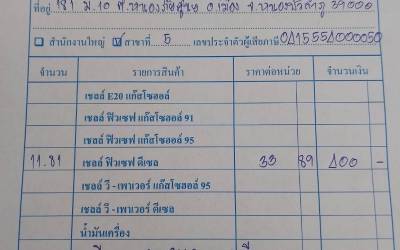 ที่อยู่ 181 ม.10 ต.หนองภัยศูนย์ อ.เมือง จ.หนองบัวลำภู 39000
สำนักงานใหญ่ ✓ สาขาที่ 5 เลขประจำตัวผู้เสียภาษี 0415554000050
จำนวน รายการสินค้า ราคาต่อหน่วย จำนวนเงิน
เชลล์ E20 แก๊สโซฮอล์
เชลล์ ฟิวเซฟ แก๊สโซฮอล์ 91
เชลล์ ฟิวเซฟ แก๊สโซฮอล์ 95
11.81 เชลล์ ฟิวเซฟ ดีเซล 33 89 400 -
เชลล์ วี - เพาเวอร์ แก๊สโซฮอล์ 95
เชลล์ วี - เพาเวอร์ ดีเซล
น้ำมันเครื่อง